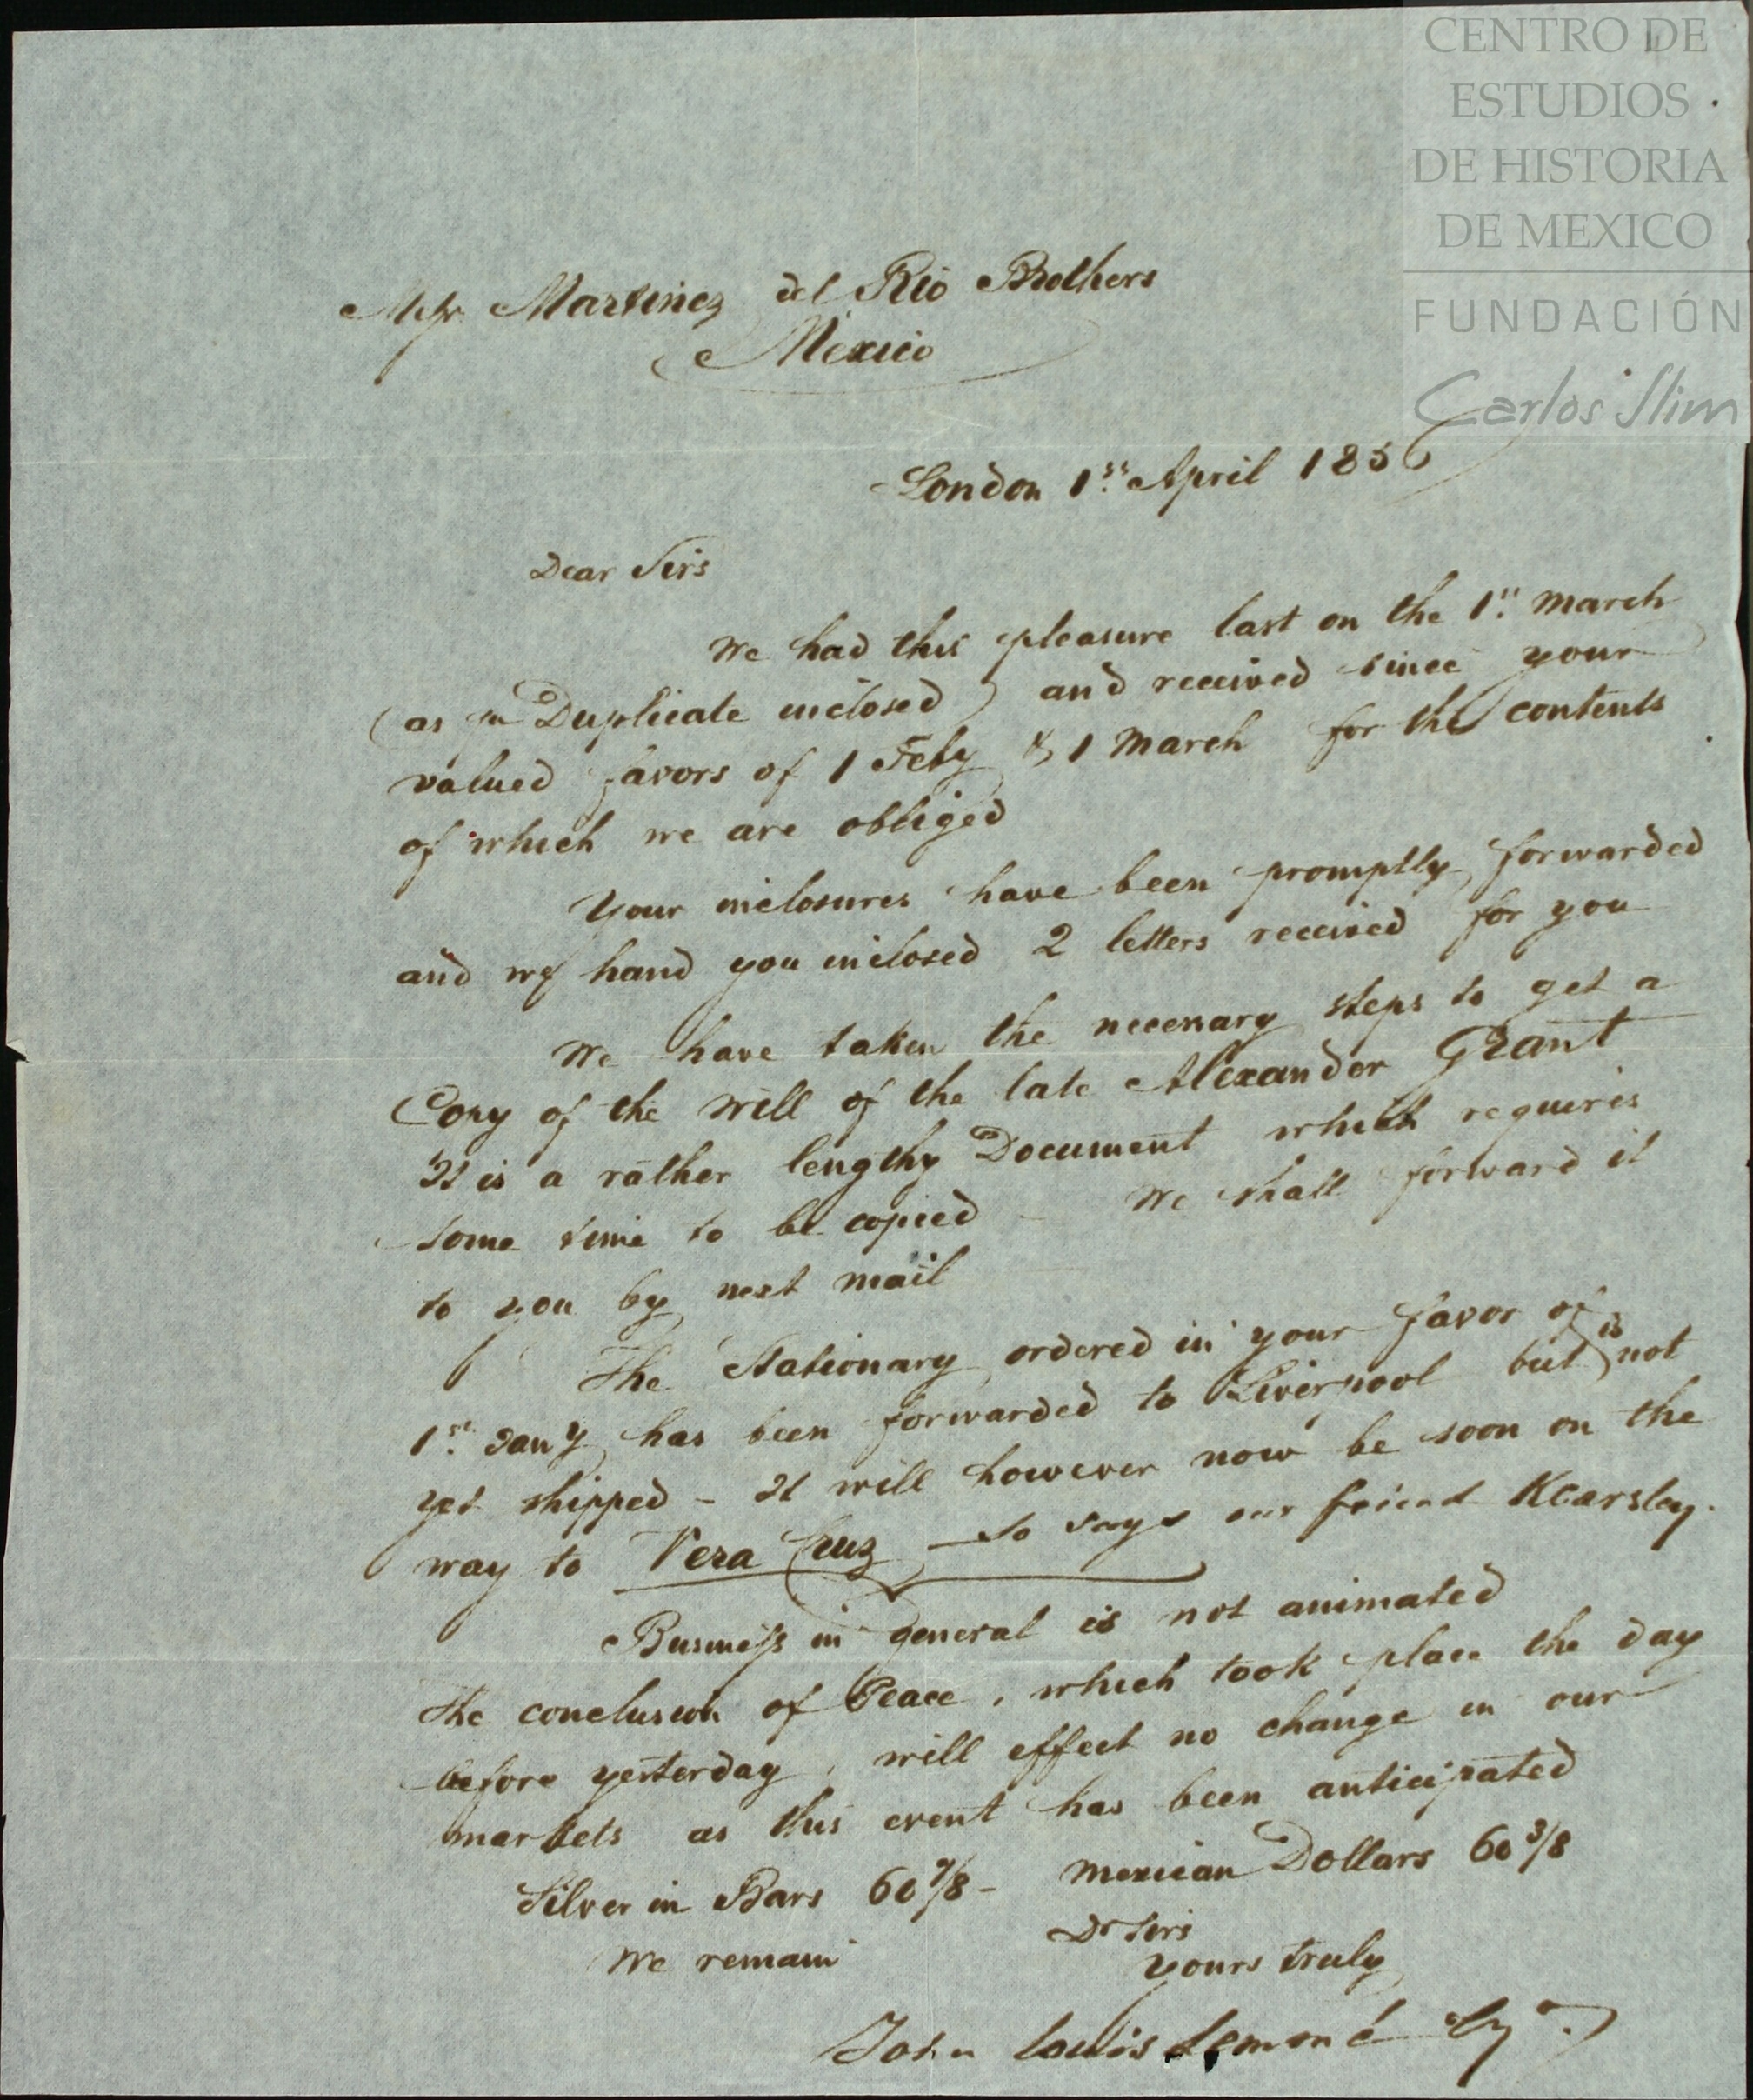 CENTRO DE
ESTUDIOS
DE HISTORIA
DE MEXICO
FUNDACIÓN
Carlos Slim
Messrs Martinez del Rio Brothers
Mexico
London 1st April 1856
Dear Sirs
We had this pleasure last on the 1st March
(as pr Duplicate inclosed) and received since your
valued favors of 1 Feby & 1 March for the contents
of which we are obliged
Your inclosures have been promptly forwarded
and we hand you inclosed 2 letters received for you
We have taken the necessary steps to get a
Copy of the will of the late Alexander Grant
It is a rather lengthy Document which requires
some time to be copied – We shall forward it
to you by next mail
The Stationary ordered in your favor of
1st Jany has been forwarded to Liverpool but is not
yet shipped – It will however now be soon on the
way to Vera Cruz – so says our friend Kearsley.
Business in general is not animated
The conclusion of Peace, which took place the day
before yesterday, will effect no change in our
markets as this event has been anticipated
Silver in Bars 60 7/8 – Mexican Dollars 60 3/8
We remain Dr Sirs
yours truly
John Louis Lemmé & Co.